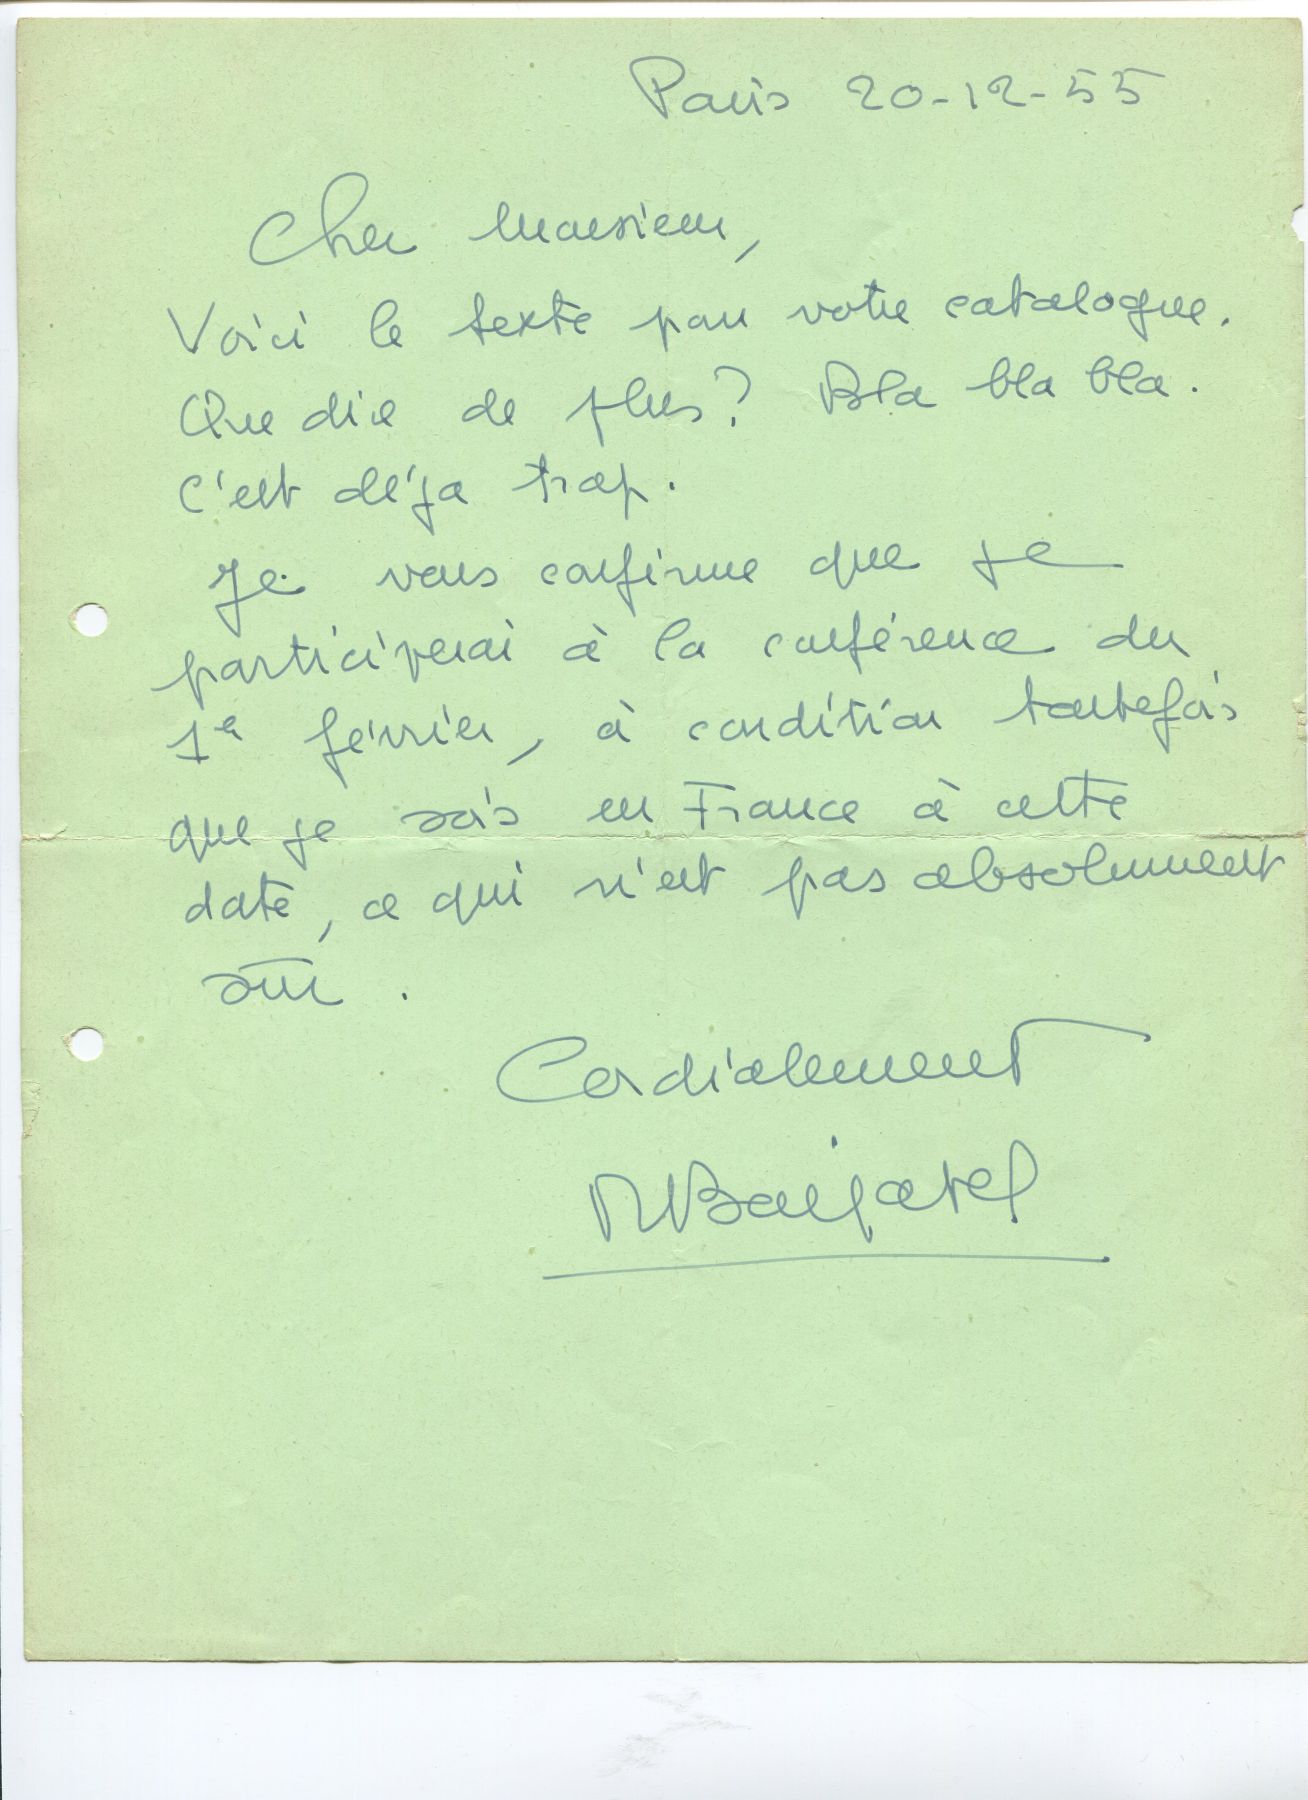 Paris 20-12-55
Cher Monsieur,
Voici le texte pour votre catalogue.
Que dire de plus? Bla bla bla.
C'est déja trop.
Je vous confirme que je
participerai à la conférence du
1er février, à condition toutefois
que je sois en France à cette
date, ce qui n'est pas absolument
sûr.
Cordialement